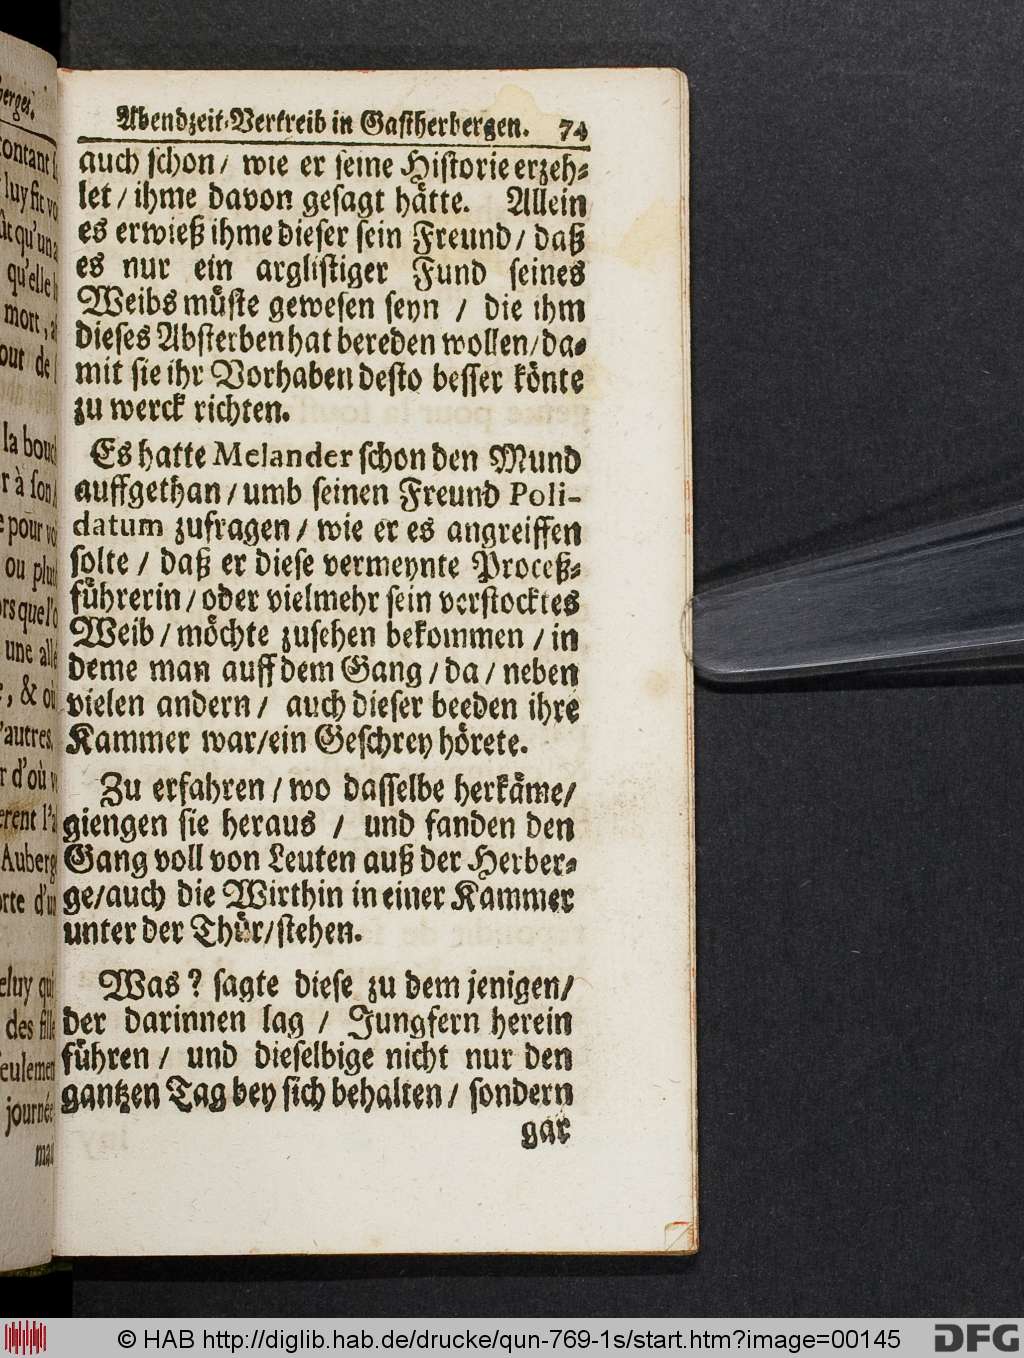 Abendzeit-Vertreib in Gastherbergen. 74
auch schon/ wie er seine Historie erzeh-
let/ ihme davon gesagt hätte. Allein
es erwieß ihme dieser sein Freund/ daß
es nur ein arglistiger Fund seines
Weibs müste gewesen seyn / die ihm
dieses Absterben hat bereden wollen/ da-
mit sie ihr Vorhaben desto besser könte
zu werck richten.
Es hatte Melander schon den Mund
auffgethan/ umb seinen Freund Poli-
datum zufragen/ wie er es angreiffen
solte / daß er diese vermeynte Proceß-
führerin/ oder vielmehr sein verstocktes
Weib/ möchte zusehen bekommen / in
deme man auff dem Gang/ da/ neben
vielen andern / auch dieser beeden ihre
Kammer war/ein Geschrey hörete.
Zu erfahren / wo dasselbe herkäme/
giengen sie heraus / und fanden den
Gang voll von Leuten auß der Herber-
ge/auch die Wirthin in einer Kammer
unter der Thür/stehen.
Was? sagte diese zu dem jenigen/
der darinnen lag / Jungfern herein
führen / und dieselbige nicht nur den
gantzen Tag bey sich behalten / sondern
gar
berges.
contant
luy fit
qu'un
qu'elle
mort,
out de
la
r à son
pour
ou
une
, & où
'autres,
r d'où
erent
Auberg
orte
qui
des
journée
© HAB http://diglib.hab.de/drucke/qun-769-1s/start.htm?image=00145
DFG